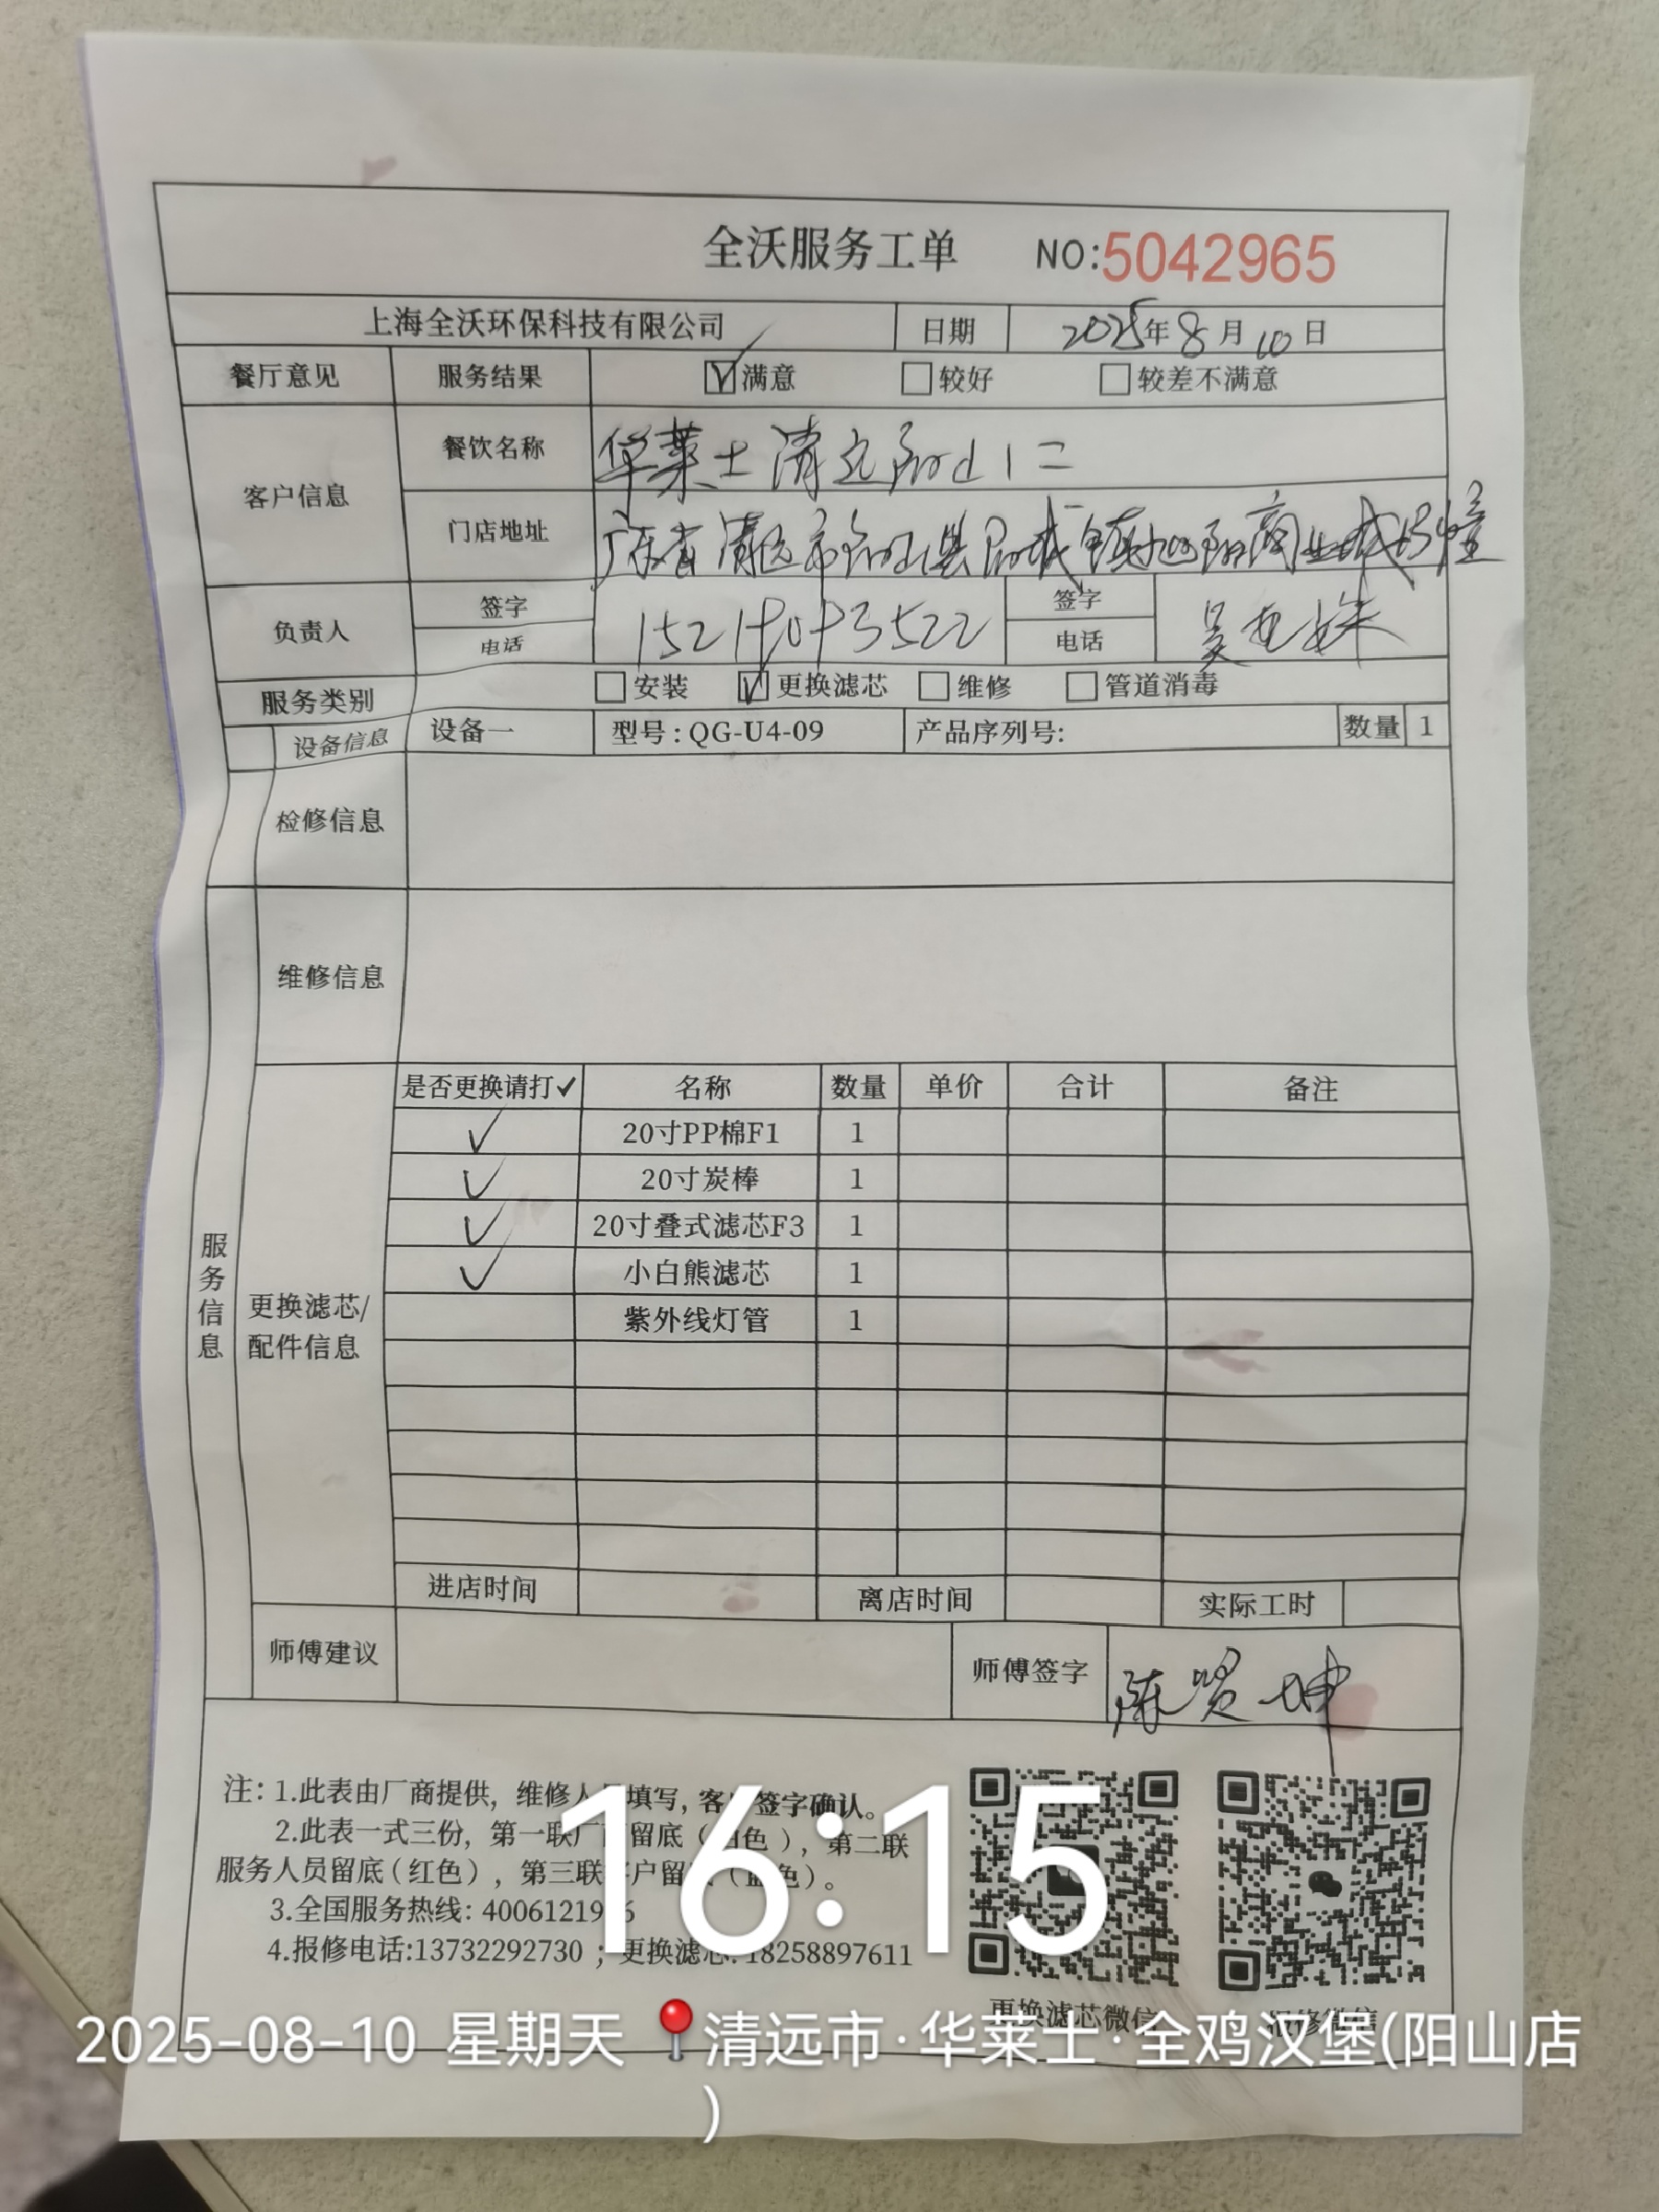 全沃服务工单 NO:5042965
上海全沃环保科技有限公司 日期 2025年8月10日
餐厅意见 服务结果 ☑满意 □较好 □较差不满意
客户信息 餐饮名称 华莱士清远阳山二
门店地址 广东省清远市阳山县阳城镇旭阳商业城
负责人 签字 电话 签字 电话 吴
服务类别 □安装 ☑更换滤芯 □维修 □管道消毒
设备信息 设备一 型号:QG-U4-09 产品序列号: 数量 1
检修信息
维修信息
服务信息
更换滤芯/
配件信息
是否更换请打✓ 名称 数量 单价 合计 备注
✓ 20寸PP棉F1 1
✓ 20寸炭棒 1
✓ 20寸叠式滤芯F3 1
✓ 小白熊滤芯 1
紫外线灯管 1
进店时间 离店时间 实际工时
师傅建议 师傅签字 陈贤坤
注: 1.此表由厂商提供, 维修人填写, 客签字确认。
2.此表一式三份, 第一联厂留底(色), 第二联
服务人员留底(红色), 第三联户留(色)。
3.全国服务热线: 40061219
4.报修电话:13732292730 ; 更换滤芯: 18258897611
更换滤芯微信 报修微信
16:15
2025-08-10 星期天 清远市·华莱士·全鸡汉堡(阳山店
)